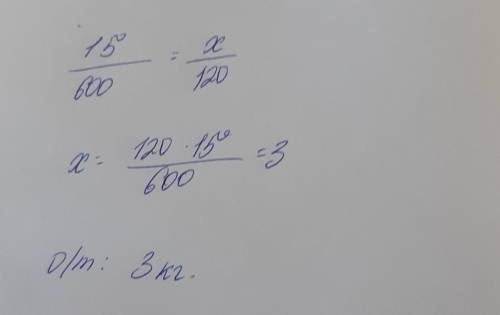 15° / 600 = x / 120
x = 120 · 15° / 600 = 3
О/т: 3 кг.